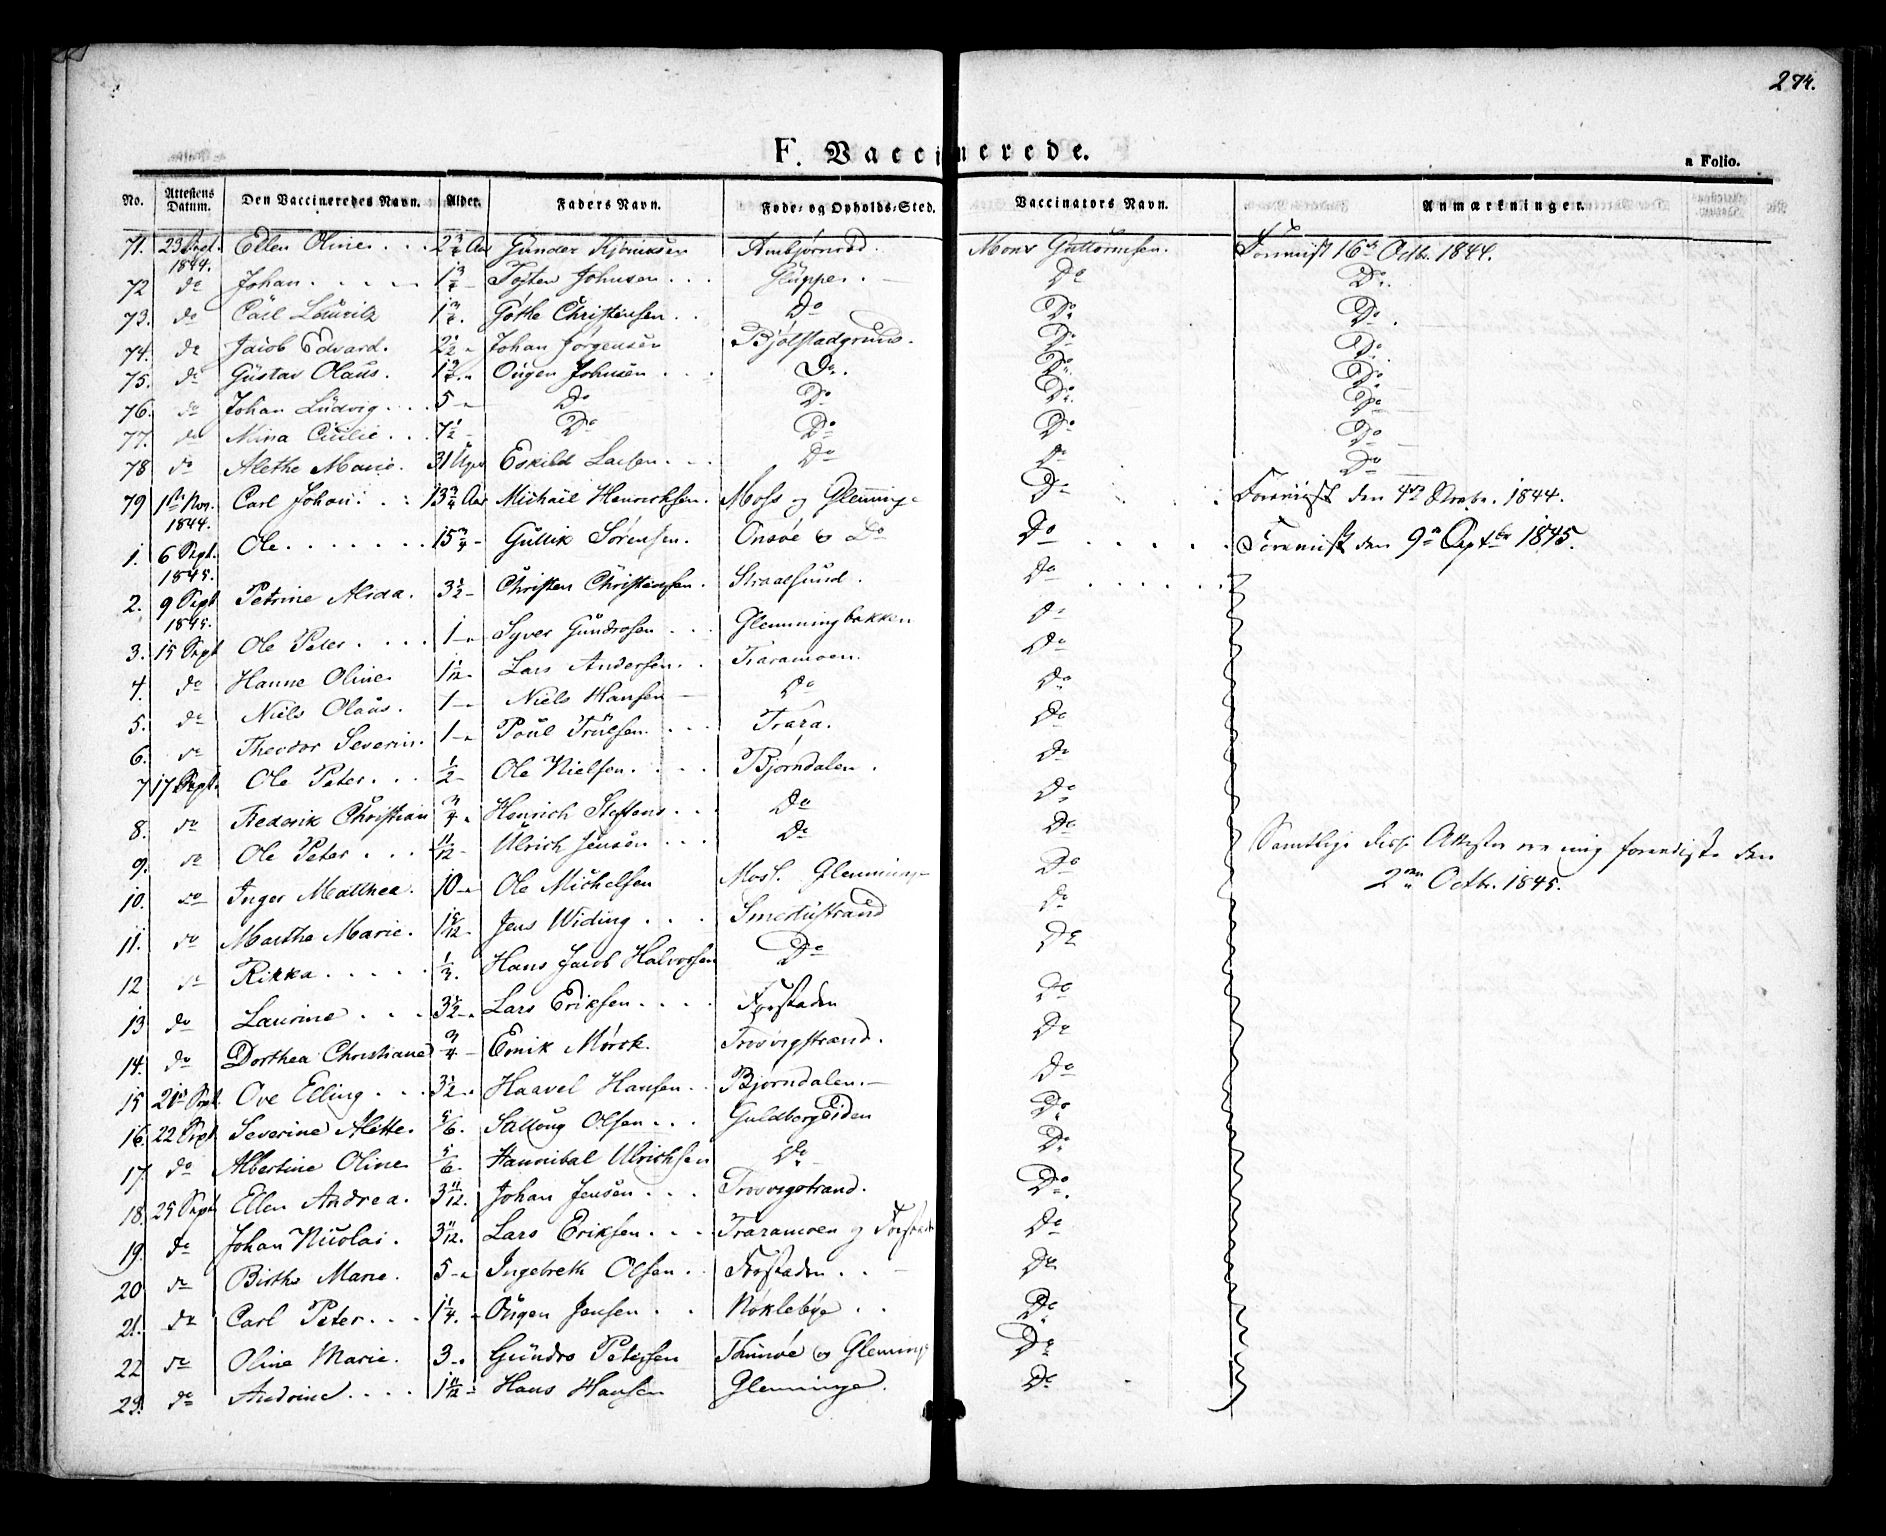 274.
F. Vaccinerede.
a Folio.
No. Attestens Datum. Den Vaccineredes Navn. Alder. Faders Navn. Føde- og Opholds-Sted. Vaccinators Navn. Anmærkninger.
71. 23 Sept. 1844. Ellen Oline Gunder Ambjørnrød. Mons Guttormsen. Foreviist 16de Octbr. 1844.
72 do Johan Johnsen Glupper. Do Do
73. do Carl Gøthe Christensen Do Do Do
74. do Jacob Edvard. Johan Jørgensen Bjølstadgrund. Do Do
75. do Gustav Olaus. Ougen Johnsen Do. Do Do
76. do Johan Ludvig 5 Do Do Do Do
77. do Mina Cicilie 7½ Do Do Do Do
78 do Alethe Marie. 31 Uger Eskild Larsen Do Do Do
79 1ste Nov. 1844. Carl Johan 13¾ Aar Michael Henrichsen. Moss og Glemminge Do Foreviist den 4de 1844.
1. 6 Sept. 1845. Ole 15¾ Gullik Sørensen. Onsøe og Do Do Foreviist den 9de Septbr 1845.
2. 9 Sept 1845. Petrine Alida. 3½ Christen Christensen. Straalsund. Do
3. 15 Sept Ole Peter 1 Syver Gundersen Glemmingbakken Do
4. do Hanne Oline Lars Andersen Traramoen. Do
5. do Niels Olaus. 1 Niels Hansen Do Do
6. do Theodor Severin. 1 Poul Trulsen Trara. Do
7 17 Sept. Ole Peter ½ Ole Nielsen Bjørndalen. Do
8. do Frederik Christian ¾ Henrich Steffens Do Do
9. do Ole Peter 11/12 Ulrich Jensen Do Do Samtlige disse Attester ere mig foreviiste den
10. do Inger Mathea. 10 Ole Michelsen Moss. Glemminge Do 2den Octbr. 1845.
11. do Marthe Marie. Jens Widing Smertustrand Do
12 do Rikka Hans Jacob Halvorsen Do Do
13 do Laurine 3½ Lars Eriksen Forstaden Do
14. do Dorthea Christiane ¾ Enik Mørck. Trosvigstrand. Do
15 21de Sept. Ove Elling 3½ Haavel Hansen Bjørndalen. Do
16. 22 Sept Severine Alette. 5/6. Olsen Guldbergeiden Do
17. do Albertine Oline 5/6. Hannibal Ulrichsen Do Do
18. 25 Sept Ellen Andrea. 3 11/12. Johan Jensen Trosvigstrand. Do
19. do Johan Nicolai. 3 11/12. Lars Eriksen Traramoen og Forstaden Do
20 do Birthe Marie. 5 Ingebreth Olsen Forstaden Do
21. do Carl Peter 1¼. Ougen Jensen Nøklebye Do
22 do Oline Marie. 3 Gundro Petersen Thunøe og Glemminge Do
23. do Andrine 1 11/12 Hans Hansen Glemminge. Do